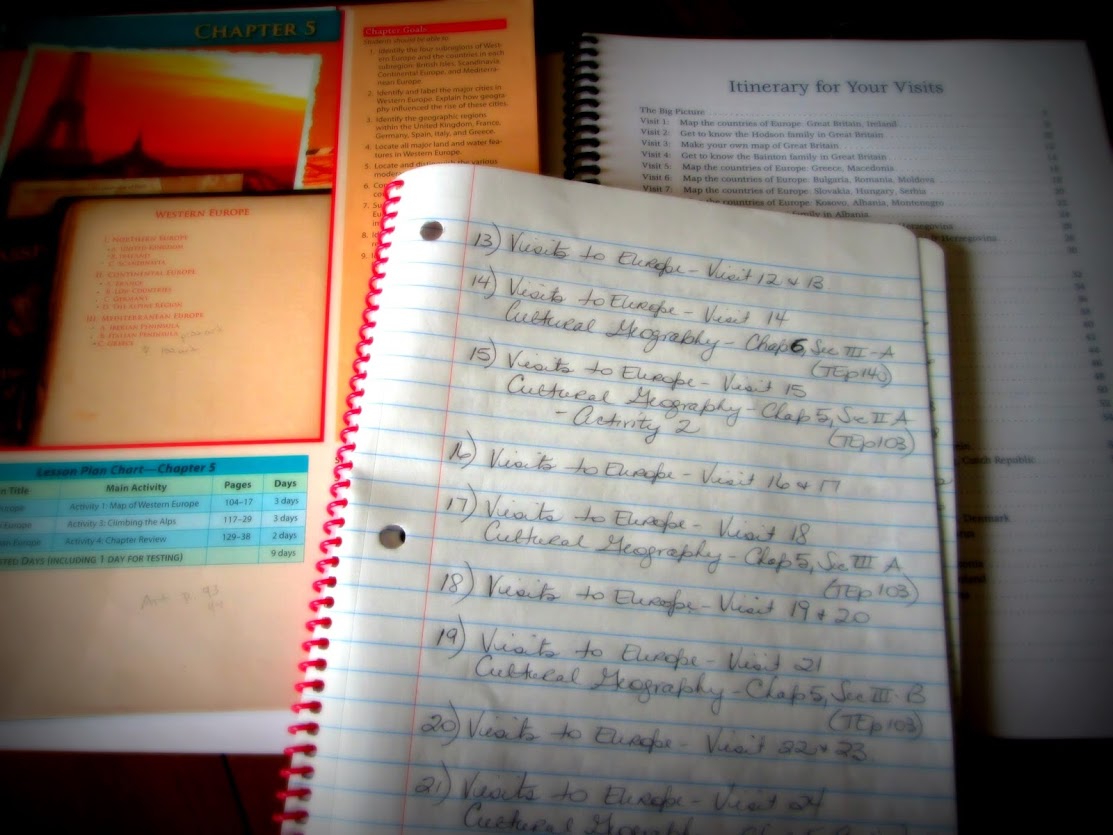 CHAPTER 5
Chapter Goals
Students should be able to
1. Identify the four subregions of West-
ern Europe and the countries in each
subregion: British Isles, Scandinavia
Continental Europe, and Mediterra-
nean Europe
2. Identify and label the major cities in
Western Europe. Explain how geogra-
phy influenced the rise of these cities.
3. Identify the geographic regions
within the United Kingdom, France,
Germany, Spain, Italy, and Greece.
4. Locate all major land and water fea-
tures in Western Europe.
5. Locate and
various
6.
7.
8.
9.
WESTERN EUROPE
I. NORTHERN EUROPE
A. UNITED KINGDOM
B. IRELAND
C. SCANDINAVIA
II. CONTINENTAL EUROPE
A. FRANCE
B. LOW COUNTRIES
C. GERMANY
D. THE ALPINE REGION
III. MEDITERRANEAN EUROPE
A. IBERIAN PENINSULA
B. ITALIAN PENINSULA
C. GREECE
Lesson Plan Chart—Chapter 5
Title Main Activity Pages Days
Activity 1: Map of Western Europe 104–17 3 days
Europe Activity 3: Climbing the Alps 117–29 3 days
Europe Activity 4: Chapter Review 129–38 2 days
DAYS (INCLUDING 1 DAY FOR TESTING) 9 days
Art P. 93
Itinerary for Your Visits
The Big Picture
Visit 1: Map the countries of Europe: Great Britain, Ireland
Visit 2: Get to know the Hodson family in Great Britain
Visit 3: Make your own map of Great Britain
Visit 4: Get to know the Bainton family in Great Britain
Visit 5: Map the countries of Europe: Greece, Macedonia
Visit 6: Map the countries of Europe: Bulgaria, Romania, Moldova
Visit 7: Map the countries of Europe: Slovakia, Hungary, Serbia
the countries of Europe: Kosovo, Albania, Montenegro
family in Albania
Herzegovina
Czech Republic
Denmark
13) Visits to Europe - Visit 12 & 13
14) Visits to Europe - Visit 14
Cultural Geography - Chap 6, Sec III-A
(TEp140)
15) Visits to Europe - Visit 15
Cultural Geography - Chap 5, Sec II A
- Activity 2 (TEp103)
16) Visits to Europe - Visit 16 & 17
17) Visits to Europe - Visit 18
Cultural Geography - Chap 5, Sec III A
(TEp103)
18) Visits to Europe - Visit 19 & 20
19) Visits to Europe - Visit 21
Cultural Geography - Chap 5, Sec III-B
(TEp103)
20) Visits to Europe - Visit 22 & 23
21) Visits to Europe - Visit 24
Cultural Geography